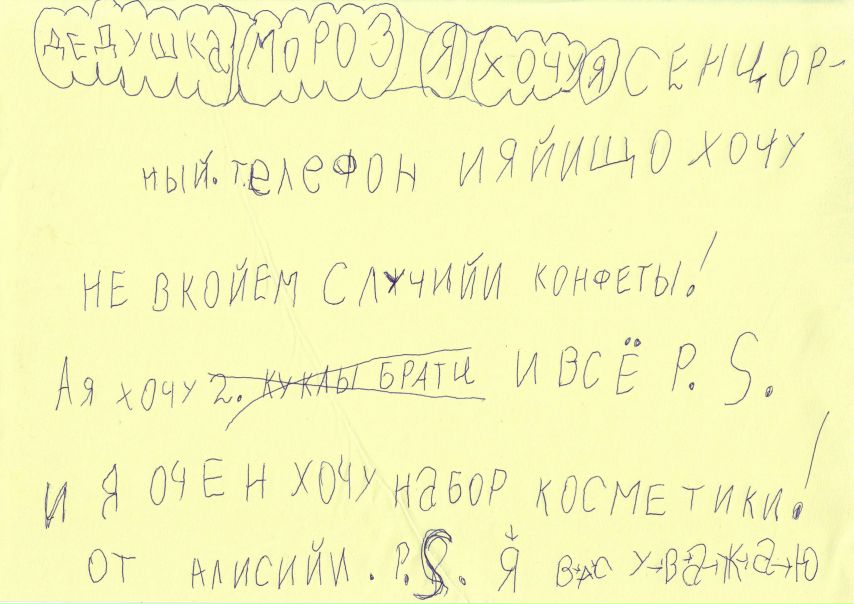 ДЕДУШКа МОРОЗ Я ХОЧУ Я СЕНЦОР-
ный. телеФОН И Я ЙИЩО ХОЧУ
НЕ В КОЙЕМ СЛУЧИЙИ КОНФЕТЫ!
А Я ХОЧУ 2. КУКЛЫ БРАТЦ И ВСЁ P. S.
И Я ОЧЕН ХОЧУ НаБОР КОСМЕТИКИ!
ОТ АЛИСИЙИ. P. S. Я ВАС УВаЖаЮ